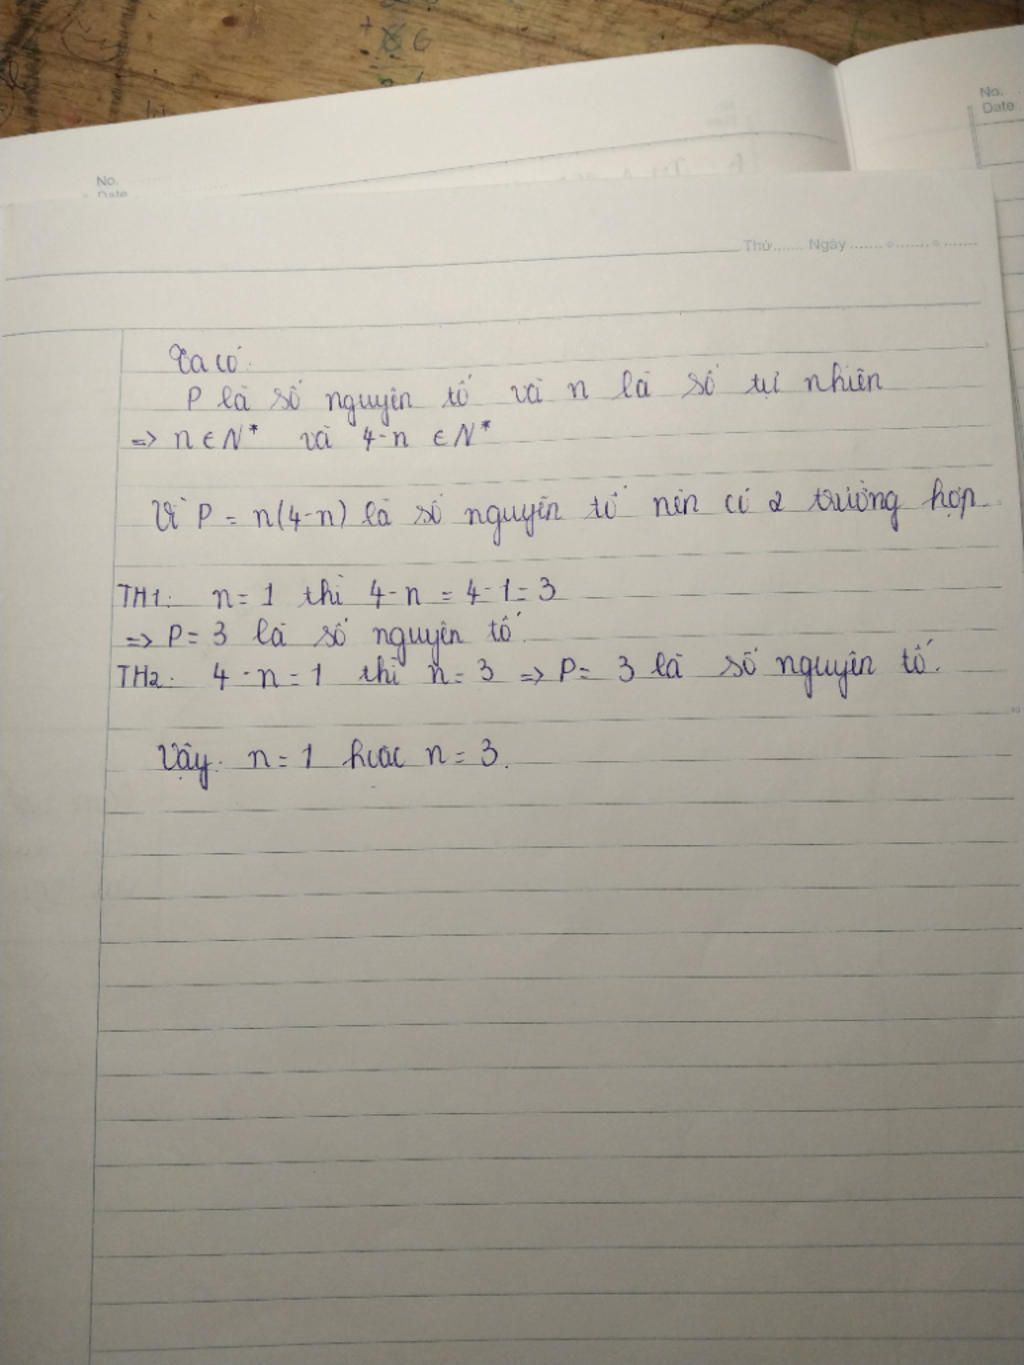 No.
Date
No.
Date
Thứ....... Ngày ....... o ....... o .......
Ta có:
P là số nguyên tố và n là số tự nhiên
=> n ∈ N* và 4-n ∈ N*
Vì P = n(4-n) là số nguyên tố nên có 2 trường hợp
TH1: n = 1 thì 4-n = 4-1 = 3
=> P = 3 là số nguyên tố
TH2: 4-n = 1 thì n = 3 => P = 3 là số nguyên tố.
Vậy: n = 1 hoặc n = 3.